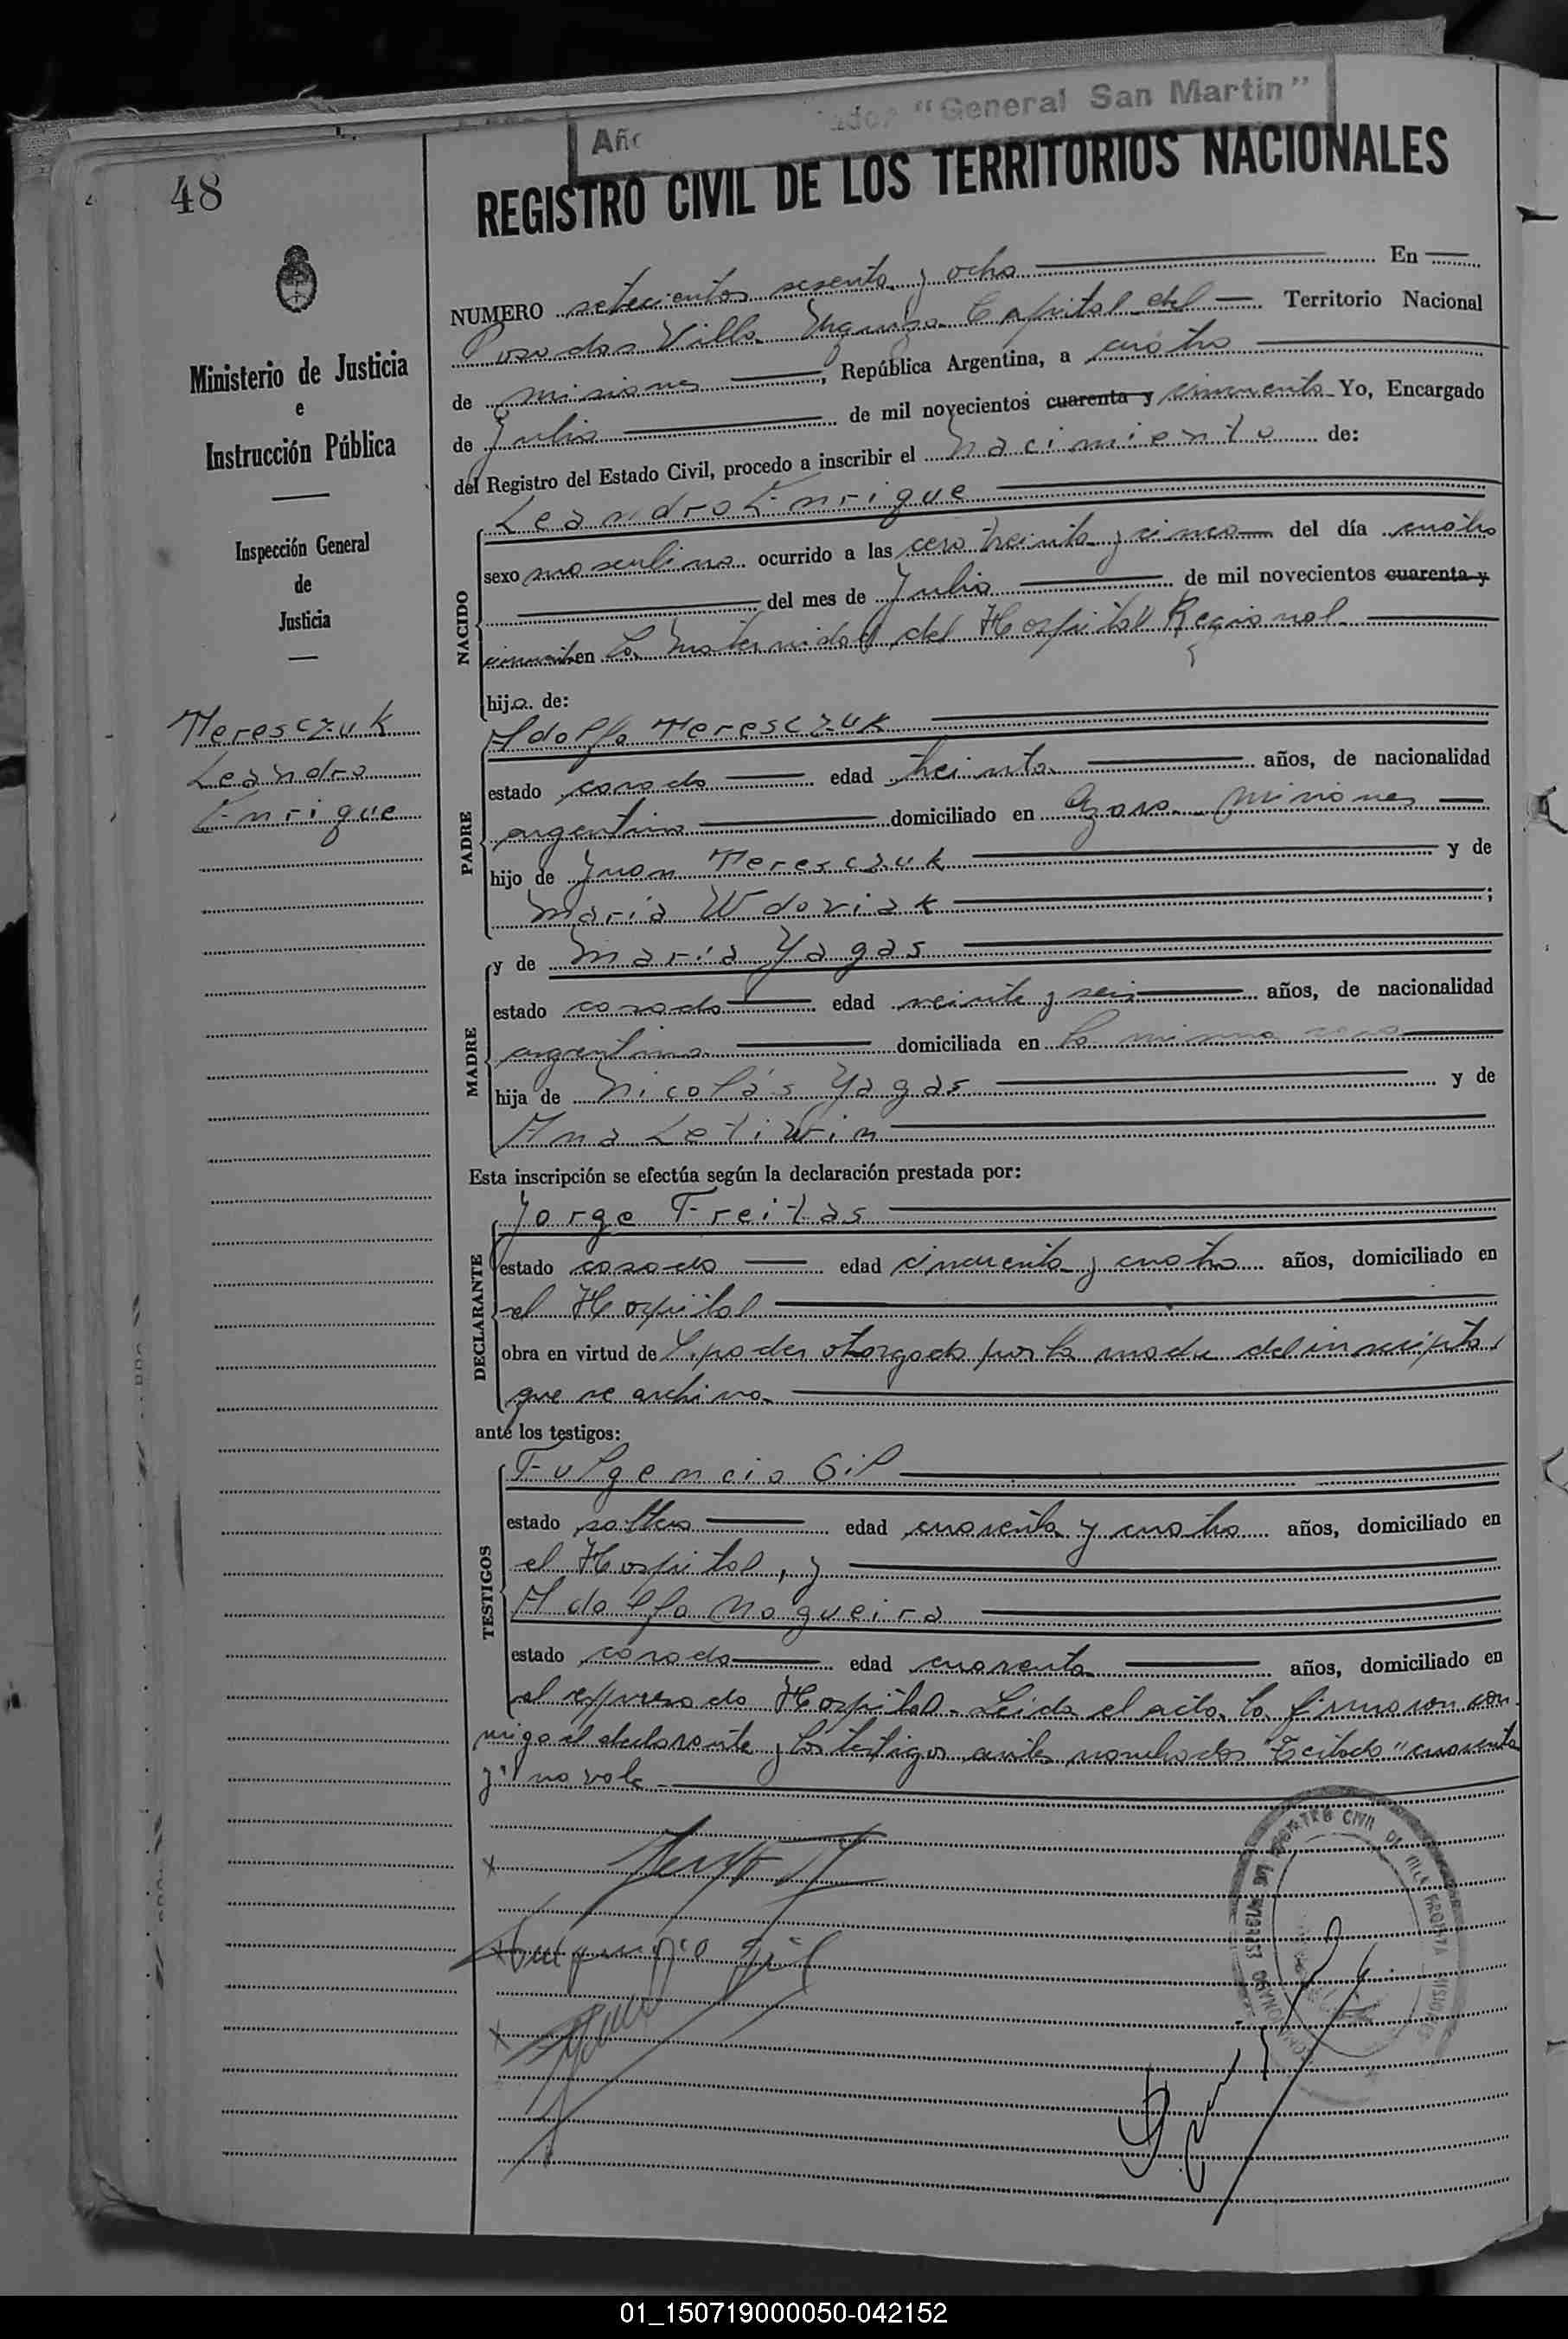 Año "General San Martin"
48
REGISTRO CIVIL DE LOS TERRITORIOS NACIONALES
NUMERO setecientos sesenta y ocho En
Posadas Villa Urquiza Capital del Territorio Nacional
de misiones, República Argentina, a cuatro
de Julio de mil novecientos cuarenta y cincuenta Yo, Encargado
del Registro del Estado Civil, procedo a inscribir el nacimiento de:
Ministerio de Justicia
e
Instrucción Pública
Inspección General
de
Justicia
Tereszczuk
Leandro
Enrique
NACIDO
Leandro Enrique
sexo masculino ocurrido a las cero treinta y cinco del día cuatro
del mes de Julio de mil novecientos cuarenta y
cincuenta en La Maternidad del Hospital Regional
hijo de:
PADRE
Adolfo Teresczuk
estado casado edad treinta años, de nacionalidad
argentino domiciliado en Azara misiones
hijo de Juan Teresczuk y de
María Wdoviak;
MADRE
y de María Yagas
estado casada edad veinte y seis años, de nacionalidad
argentina domiciliada en la misma casa
hija de Nicolás Yagas y de
Ana Letiwin
Esta inscripción se efectúa según la declaración prestada por:
DECLARANTE
Jorge Freitas
estado casado edad cincuenta y cuatro años, domiciliado en
el Hospital
obra en virtud de poder otorgado por la madre del inscripto,
que se archiva
ante los testigos:
TESTIGOS
Fulgencio Gil
estado soltero edad cuarenta y cuatro años, domiciliado en
el Hospital, y
Adolfo Nogueira
estado casado edad cuarenta años, domiciliado en
el expresado Hospital. Leida el acta la firmaron con
migo el declarante y los testigos antes nombrados "cuarenta
y" no vale
Fulgencio Gil
REGISTRO CIVIL
01_150719000050-042152